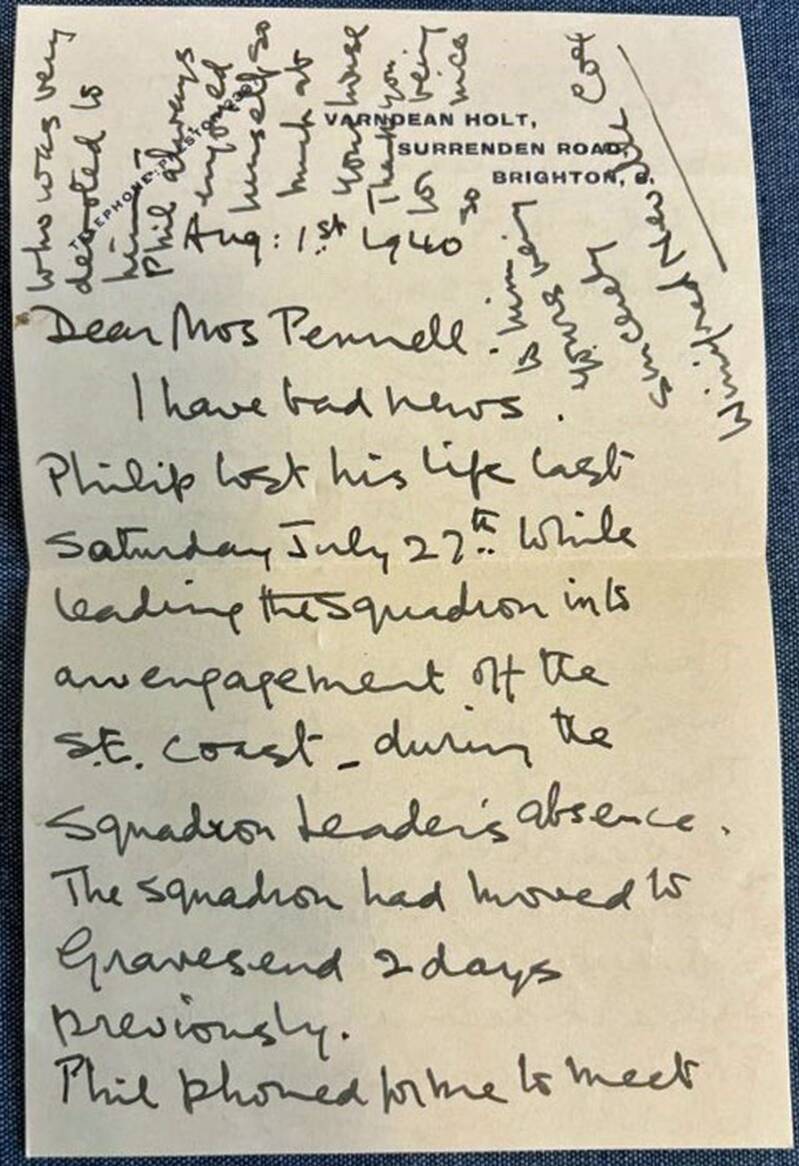 VARNDEAN HOLT,
SURRENDEN ROAD,
BRIGHTON, 6.
TELEPHONE: PRESTON
Aug: 1st 1940
Dear Mrs Pennell.
I have bad news.
Philip lost his life last
Saturday July 27th while
leading the squadron into
an engagement off the
S.E. Coast - during the
Squadron Leader's absence.
The squadron had moved to
Gravesend 2 days
previously.
Phil phoned for me to meet
who was very
devoted to
him
Phil always
enjoyed
himself so
much at
your house
Thank you
for being
so nice
to him
Yours very
sincerely
Winifred Cox